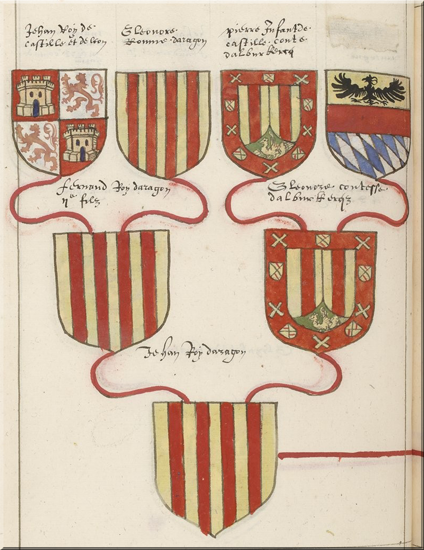 Jehan Roy de
castille et de leon
Eleonore
Romme daragon
pierre Infant de
castille conte
dalburkerq
fernand Roy daragon
ii filz
Eleonore contesse
dalburkerq
Jehan Roy daragon